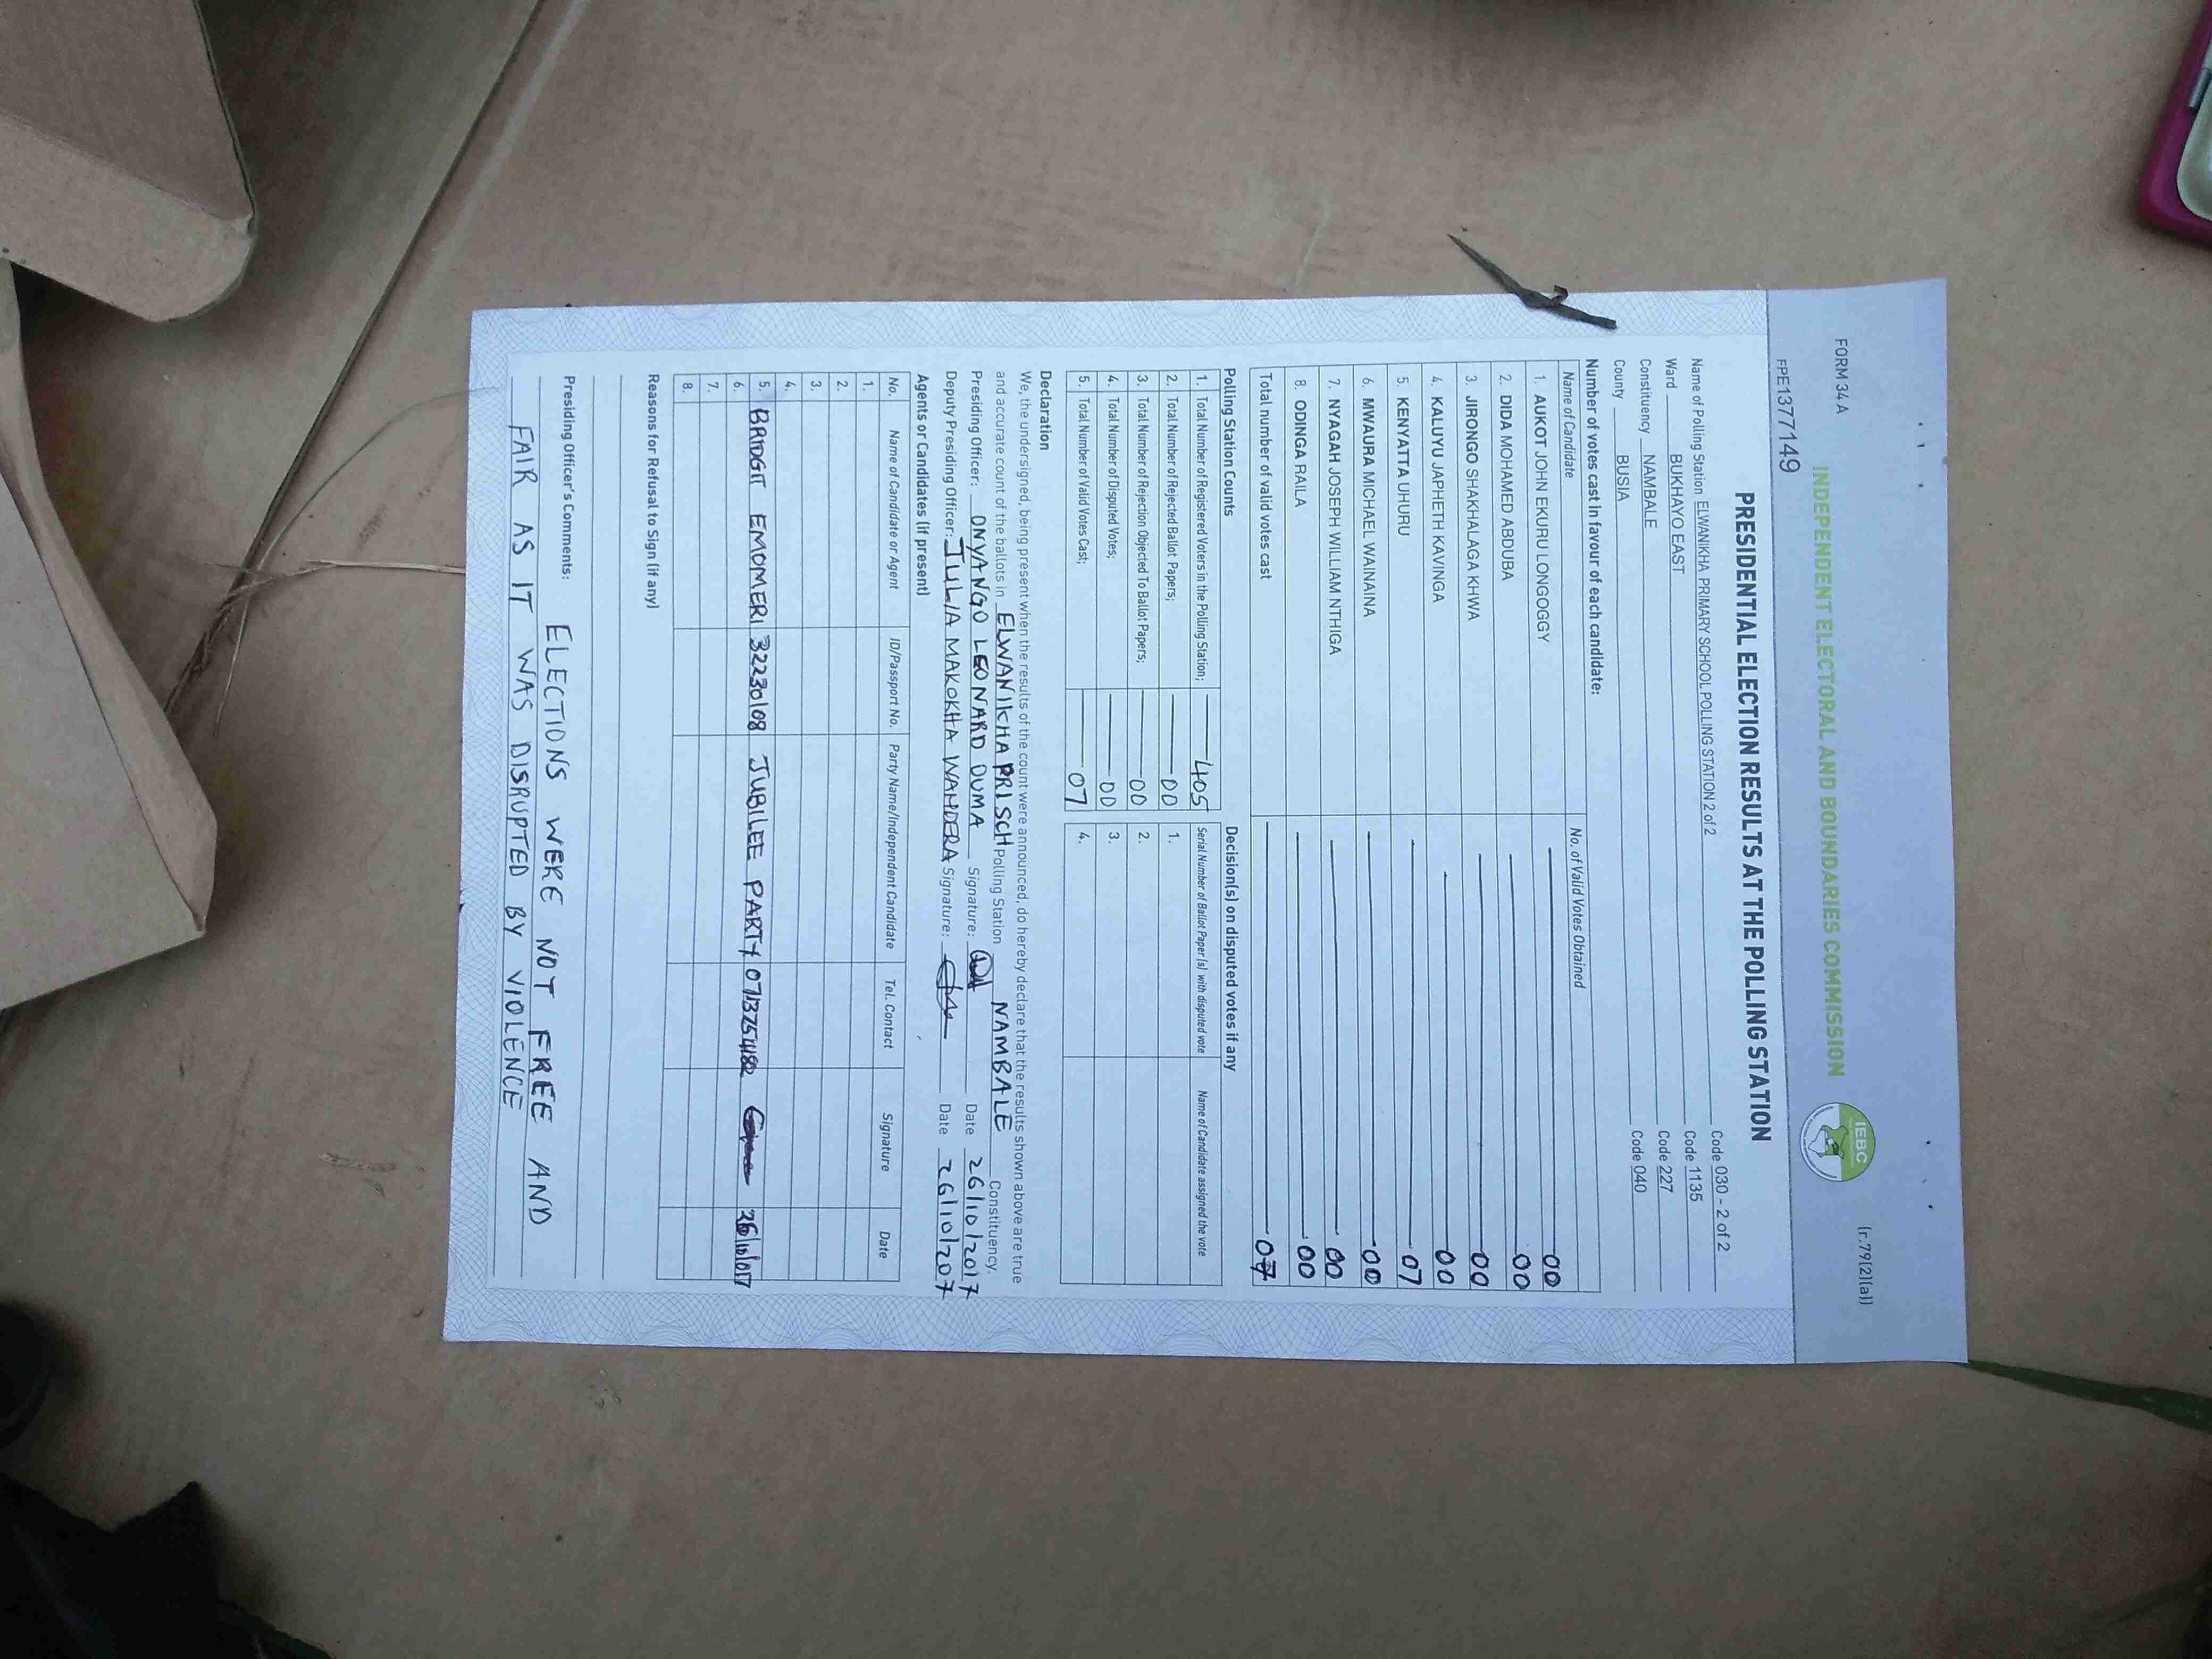 FORM 34 A
(r.79(2)(a))
INDEPENDENT ELECTORAL AND BOUNDARIES COMMISSION
IEBC
PRESIDENTIAL ELECTION RESULTS AT THE POLLING STATION
Name of Polling Station ELWANIKHA PRIMARY SCHOOL POLLING STATION 2 of 2 Code 030 - 2 of 2
Ward BUKHAYO EAST Code 1135
Constituency NAMBALE Code 227
County BUSIA Code 040
Number of votes cast in favour of each candidate:
Name of Candidate No. of Valid Votes Obtained
1. AUKOT JOHN EKURU LONGOGGY 00
2. DIDA MOHAMED ABDUBA 00
3. JIRONGO SHAKHALAGA KHWA 00
4. KALUYU JAPHETH KAVINGA 00
5. KENYATTA UHURU 07
6. MWAURA MICHAEL WAINAINA 00
7. NYAGAH JOSEPH WILLIAM NTHIGA 00
8. ODINGA RAILA 00
Total number of valid votes cast 07
Polling Station Counts
1. Total Number of Registered Voters in the Polling Station; 405
2. Total Number of Rejected Ballot Papers; 00
3. Total Number of Rejection Objected To Ballot Papers; 00
4. Total Number of Disputed Votes; 00
5. Total Number of Valid Votes Cast; 07
Decision(s) on disputed votes if any
Serial Number of Ballot Paper(s) with disputed vote Name of Candidate assigned the vote
1.
2.
3.
4.
Declaration
We, the undersigned, being present when the results of the count were announced, do hereby declare that the results shown above are true
and accurate count of the ballots in ELWANIKHA PRI SCH Polling Station NAMBALE Constituency.
Presiding Officer: ONYANGO LEONARD DUMA Signature: Date 26/10/2017
Deputy Presiding Officer: JULIA MAKOKHA WANDERA Signature: Date 26/10/207
Agents or Candidates (if present)
No. Name of Candidate or Agent ID/Passport No. Party Name/Independent Candidate Tel. Contact Signature Date
1.
2.
3.
4.
5. BRIDGIT EMOMERI 32230108 JUBILEE PARTY
6.
7.
8.
Reasons for Refusal to Sign (if any)
Presiding Officer's Comments: ELECTIONS WERE NOT FREE AND
FAIR AS IT WAS DISRUPTED BY VIOLENCE